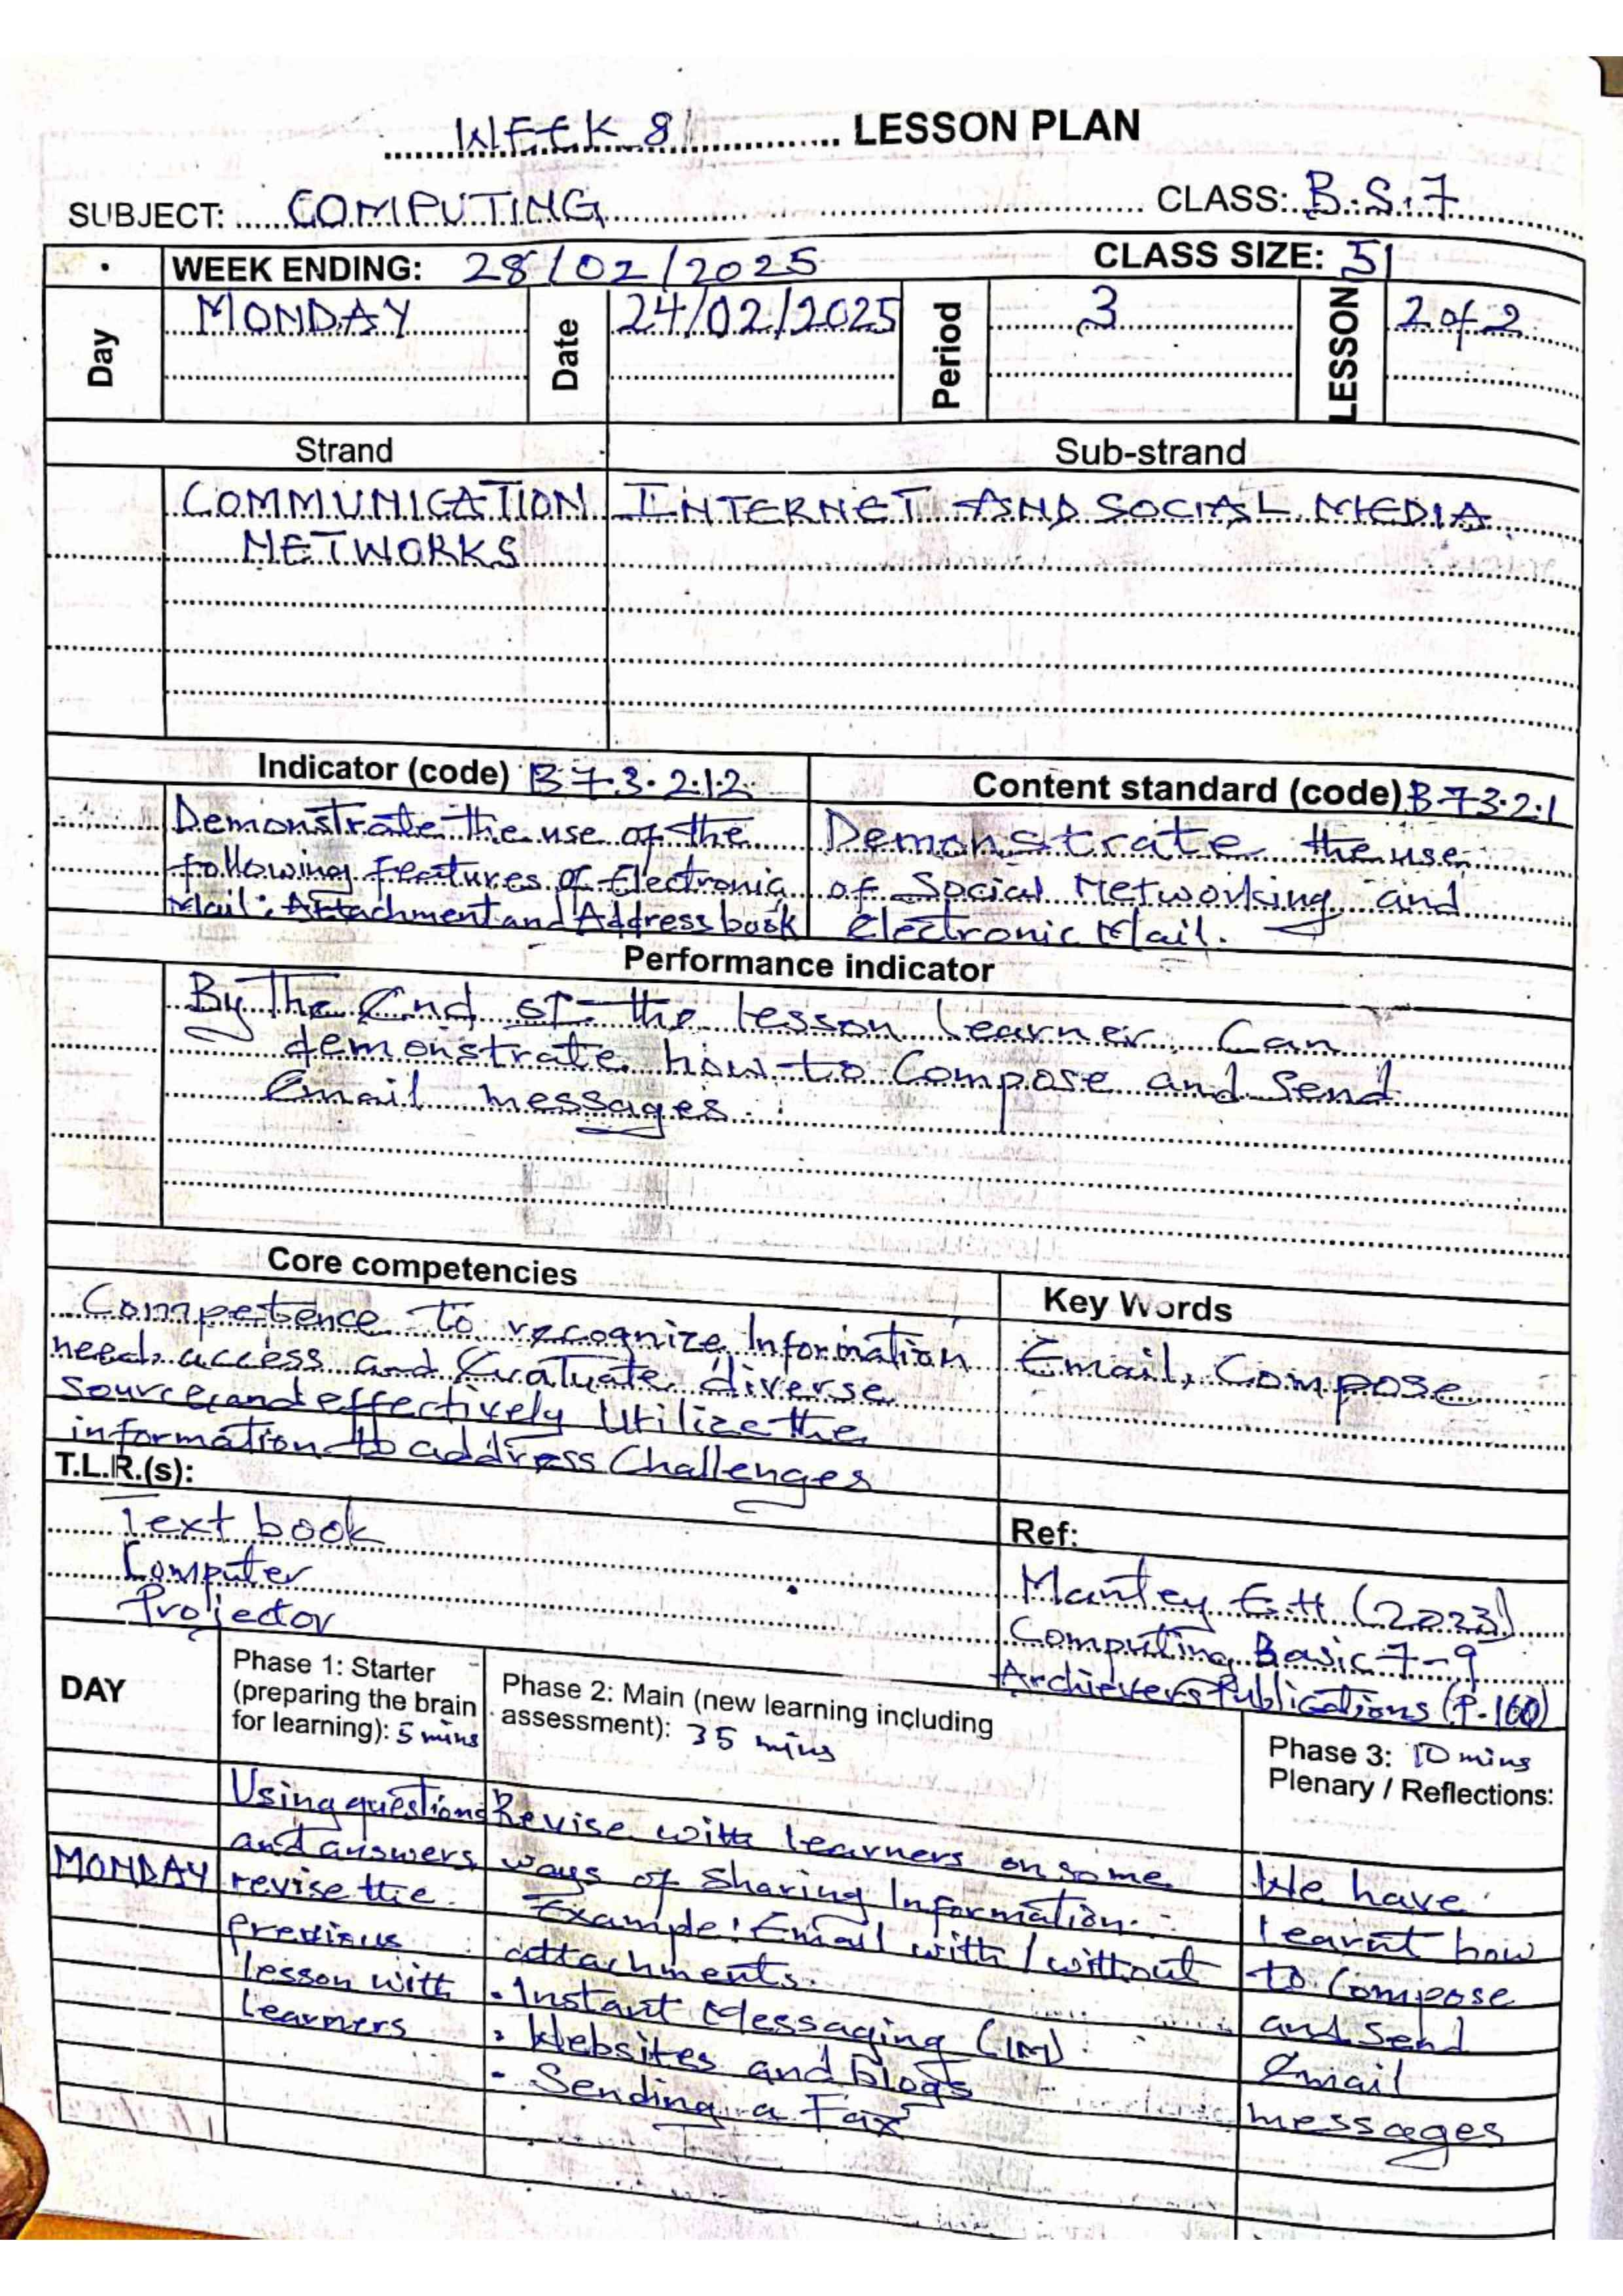 WEEK 8 LESSON PLAN
SUBJECT: COMPUTING CLASS: B.S.7
WEEK ENDING: 28/02/2025 CLASS SIZE: 51
Day MONDAY Date 24/02/2025 Period 3 LESSON 2 of 2
Strand Sub-strand
COMMUNICATION INTERNET AND SOCIAL MEDIA
NETWORKS
Indicator (code) B7.3.2.1.2. Content standard (code) B73.2.1
Demonstrate the use of the
following features of Electronic
Mail: Attachment and Address book
Demonstrate the use
of Social Networking and
Electronic Mail.
Performance indicator
By the End of the lesson learner Can
demonstrate how to Compose and Send
Email messages.
Core competencies
Competence to recognize Information
need, access and Evaluate diverse
source and effectively Utilize the
information to address Challenges
Key Words
Email, Compose
T.L.R.(s):
Text book
Computer
Projector
Ref:
Mantey E.H (2023)
Computing Basic 7-9
Archievers Publications (P.160)
DAY
Phase 1: Starter
(preparing the brain
for learning): 5 mins
Phase 2: Main (new learning including
assessment): 35 mins
Phase 3: 10 mins
Plenary / Reflections:
MONDAY
Using questions
and answers
revise the
previous
lesson with
Learners
Revise with learners on some
ways of Sharing Information.
Example: Email with / without
attachments.
• Instant Messaging (IM)
• Websites and blogs
- Sending a Fax
We have
learnt how
to Compose
and Send
Email
messages